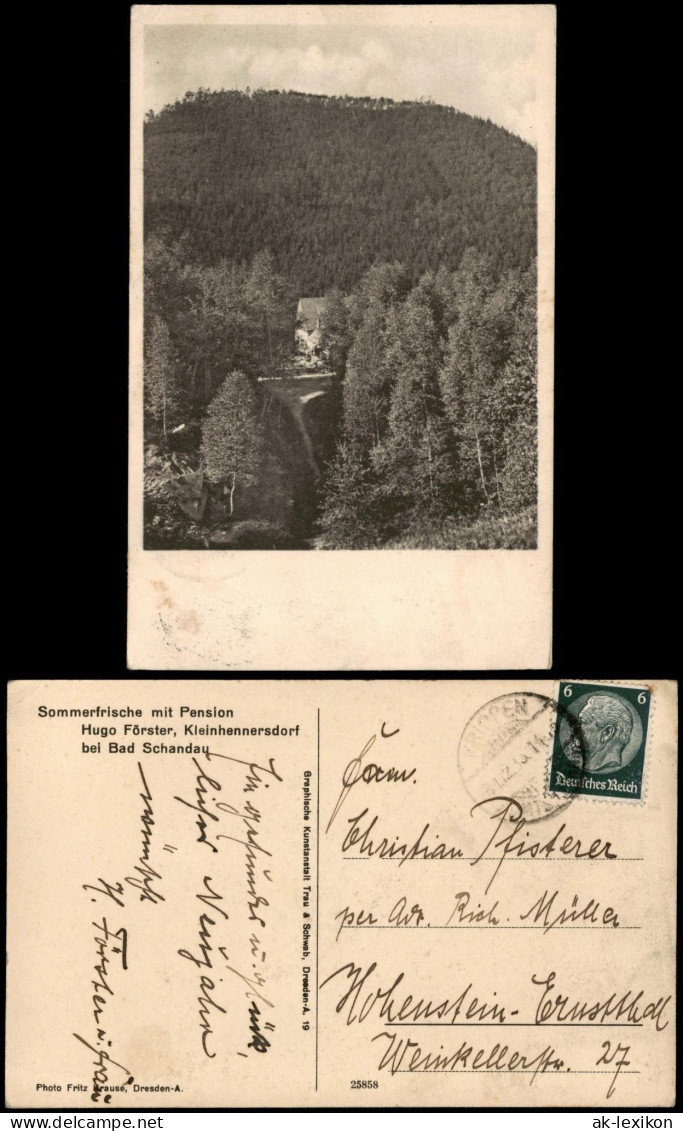 Sommerfrische mit Pension
Hugo Förster, Kleinhennersdorf
bei Bad Schandau
Ein gesundes u. glück-
liches Neujahr
wünscht
H. Förster u. Frau
Graphische Kunstanstalt Trau & Schwab, Dresden-A. 19
Photo Fritz Krause, Dresden-A.
25858
KRIPPEN
6 6
Deutsches Reich
Fam.
Christian Pfisterer
per Adr. Rich. Müller
Hohenstein-Ernstthal
Weinkellerstr. 27
ak-lexikon